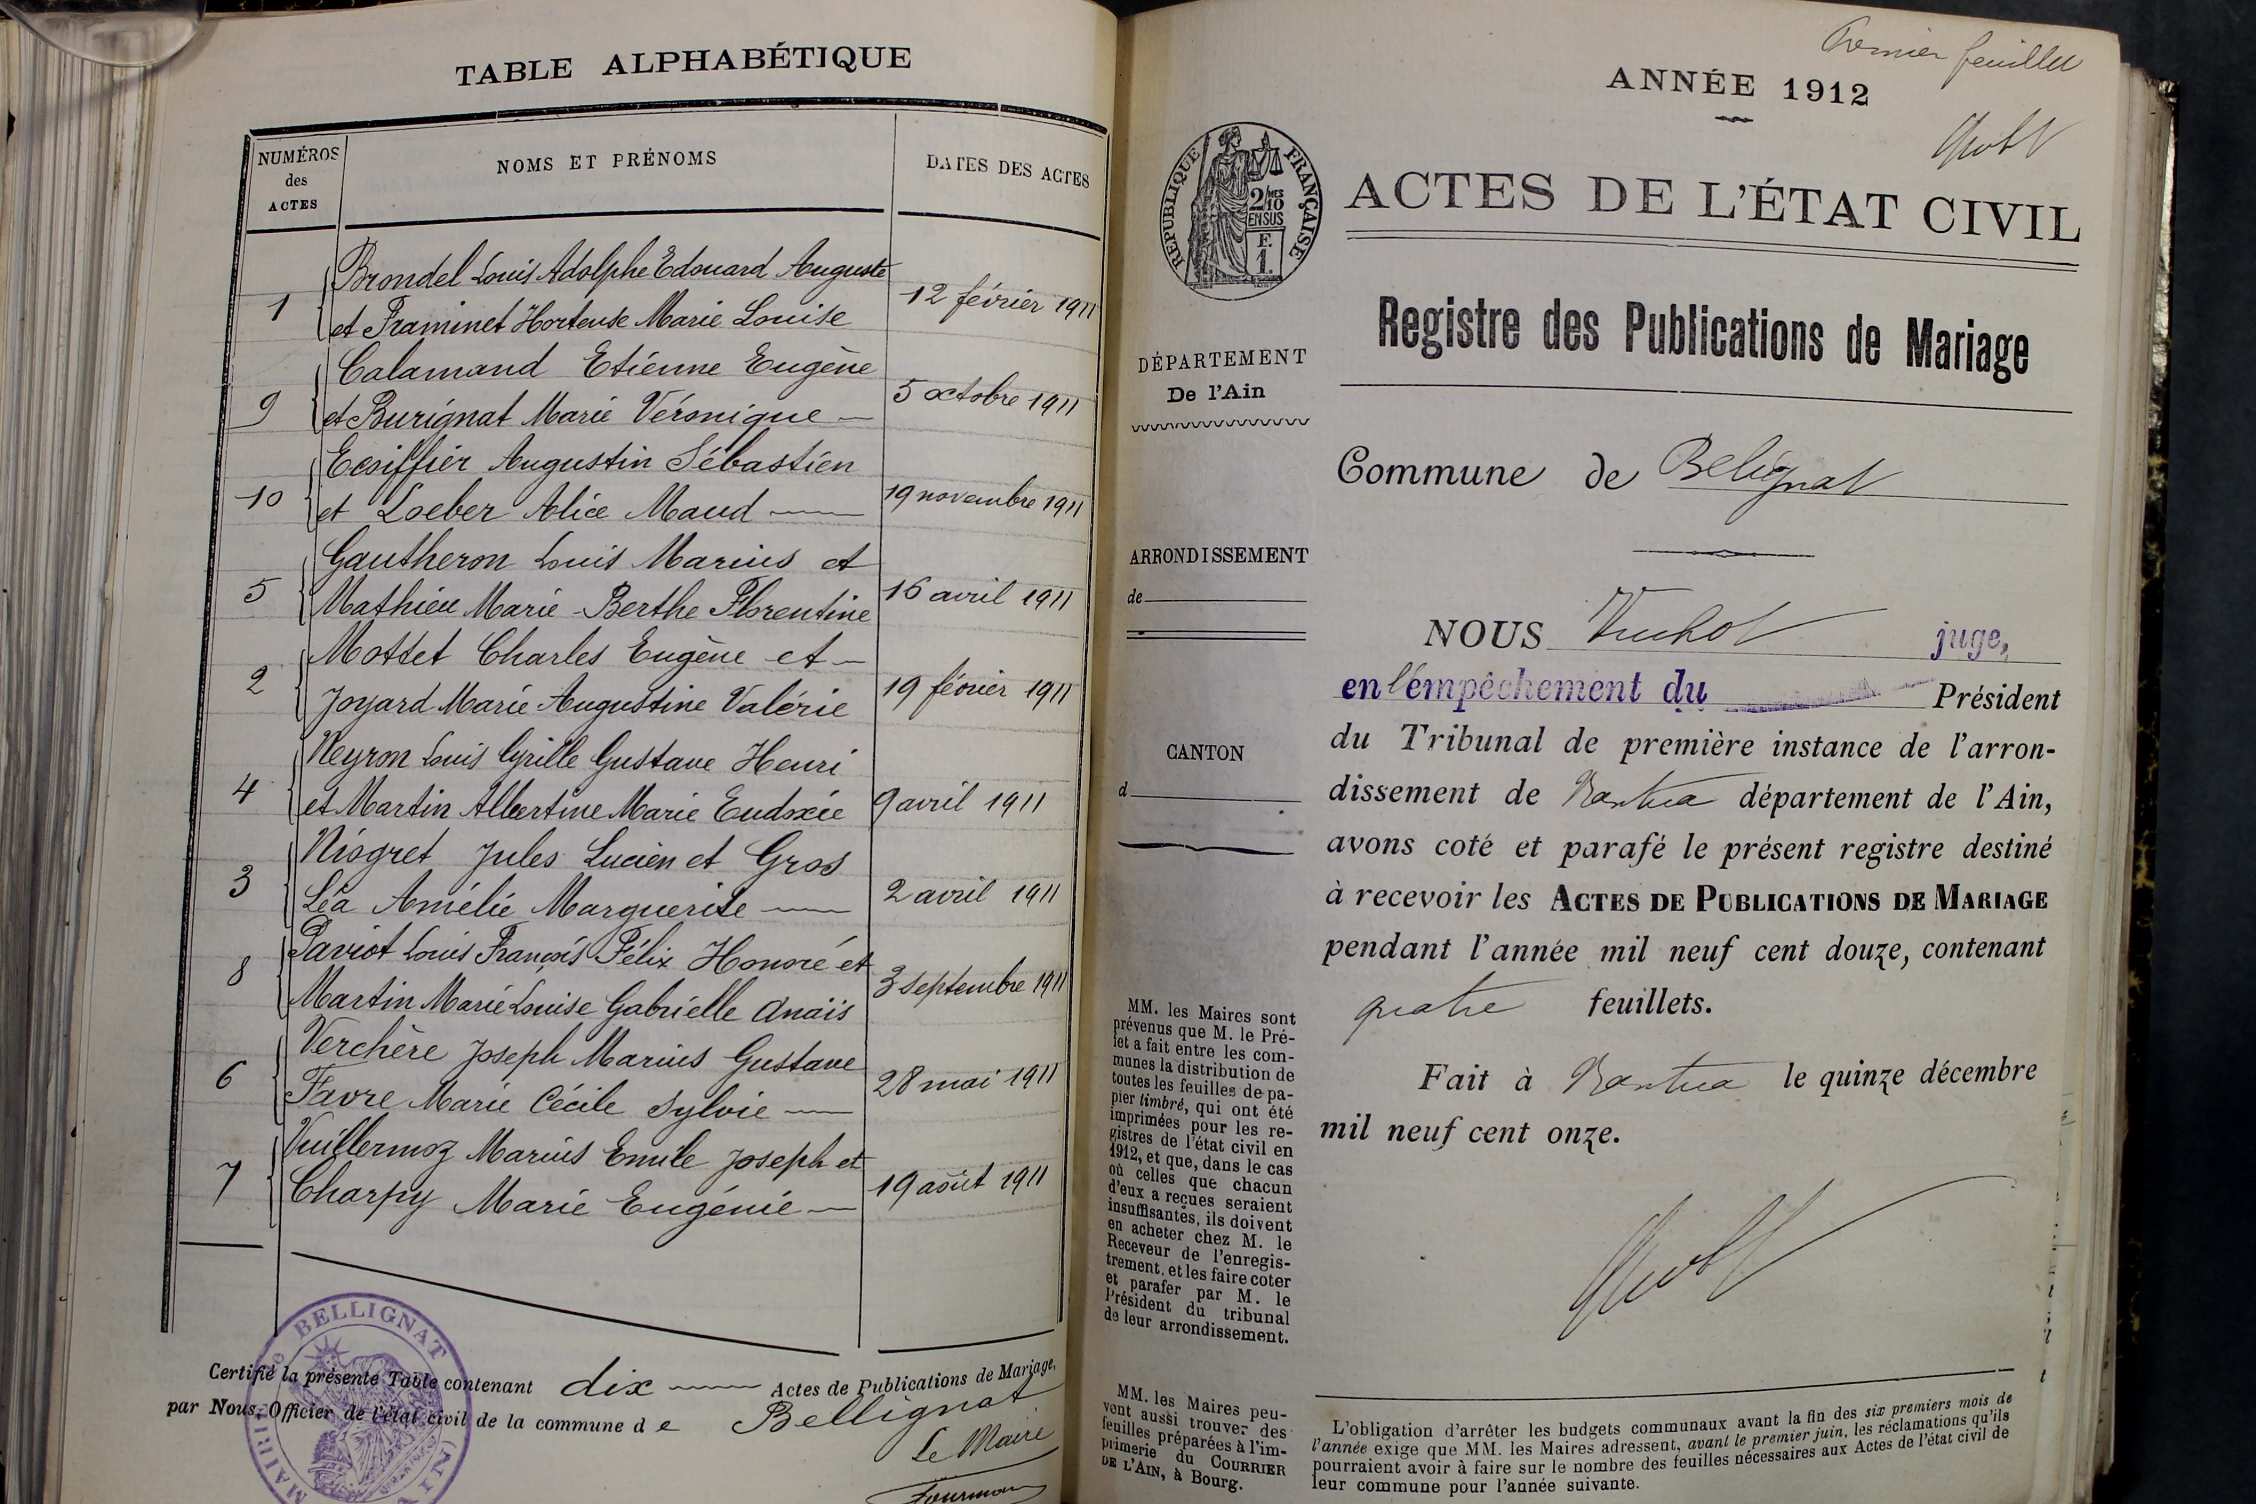 TABLE ALPHABÉTIQUE
NUMÉROS
des
ACTES
NOMS ET PRÉNOMS
DATES DES ACTES
1
Brondel Louis Adolphe Edouard Auguste
et Framinet Hortense Marie Louise
12 février 1911
9
Calamand Etienne Eugène
et Burignat Marie Véronique
5 octobre 1911
10
Ecoiffier Augustin Sébastien
et Loeber Alice Maud
19 novembre 1911
5
Gautheron Louis Marius et
Mathieu Marie Berthe Florentine
16 avril 1911
2
Mottet Charles Eugène et
Joyard Marie Augustine Valérie
19 février 1911
4
Neyron Louis Cyrille Gustave Henri
et Martin Albertine Marie Eudoxie
9 avril 1911
3
Niogret Jules Lucien et Gros
Léa Amélie Marguerite
2 avril 1911
8
Paviot Louis François Félix Honoré et
Martin Marie Louise Gabrielle Anaïs
3 septembre 1911
6
Verchère Joseph Marius Gustave
Favre Marie Cécile Sylvie
28 mai 1911
7
Vuillermoz Marius Emile Joseph et
Charpy Marie Eugénie
19 août 1911
Certifié la présente Table contenant dix Actes de Publications de Mariage,
par Nous, Officier de l'état civil de la commune de Bellignat
Le Maire
BELLIGNAT
MAIRIE
Premier feuillet
ANNÉE 1912
RÉPUBLIQUE FRANÇAISE
2/10 MES
EN SUS
F.
1.
ACTES DE L'ÉTAT CIVIL
Registre des Publications de Mariage
DÉPARTEMENT
De l'Ain
Commune de Belignat
ARRONDISSEMENT
de
CANTON
d
NOUS juge,
en l'empêchement du Président
du Tribunal de première instance de l'arron-
dissement de Nantua département de l'Ain,
avons coté et parafé le présent registre destiné
à recevoir les ACTES DE PUBLICATIONS DE MARIAGE
pendant l'année mil neuf cent douze, contenant
quatre feuillets.
Fait à Nantua le quinze décembre
mil neuf cent onze.
MM. les Maires sont
prévenus que M. le Pré-
fet a fait entre les com-
munes la distribution de
toutes les feuilles de pa-
pier timbré, qui ont été
imprimées pour les re-
gistres de l'état civil en
1912, et que, dans le cas
où celles que chacun
d'eux a reçues seraient
insuffisantes, ils doivent
en acheter chez M. le
Receveur de l'enregis-
trement, et les faire coter
et parafer par M. le
Président du tribunal
de leur arrondissement.
MM. les Maires peu-
vent aussi trouver des
feuilles préparées à l'im-
primerie du COURRIER
DE L'AIN, à Bourg.
L'obligation d'arrêter les budgets communaux avant la fin des six premiers mois de
l'année exige que MM. les Maires adressent, avant le premier juin, les réclamations qu'ils
pourraient avoir à faire sur le nombre des feuilles nécessaires aux Actes de l'état civil de
leur commune pour l'année suivante.